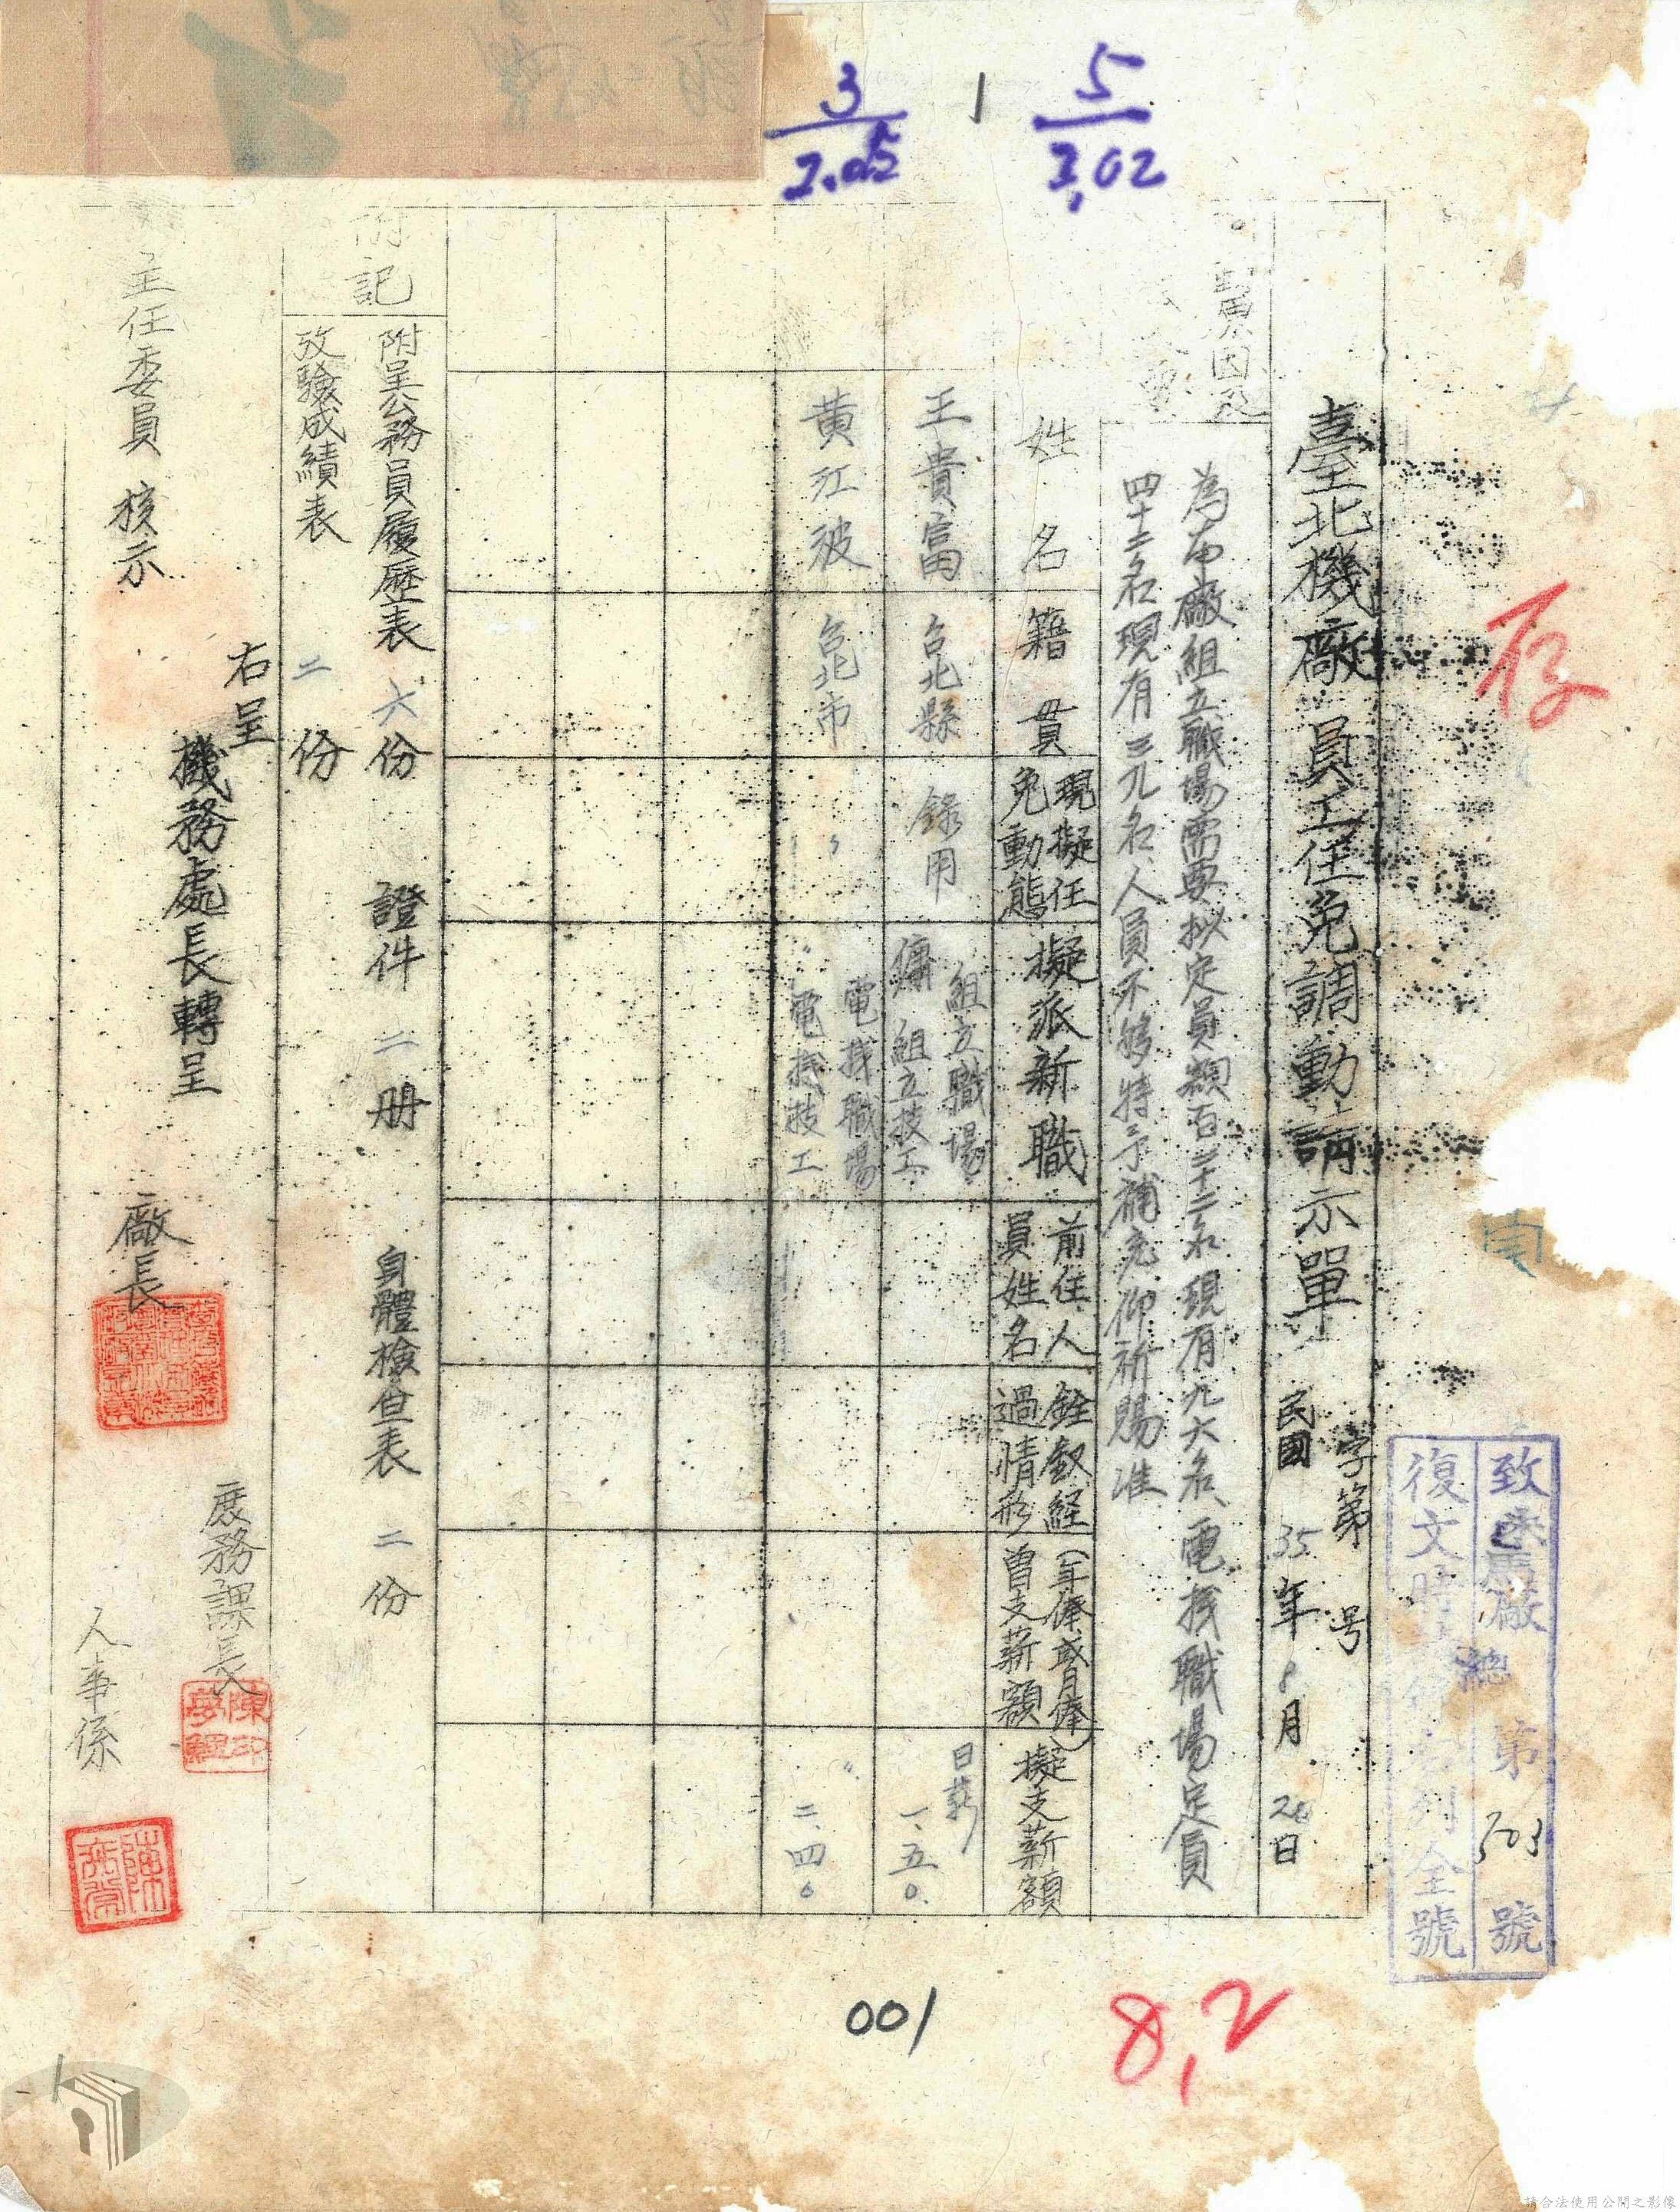 3/2.05
1
5/3.02
存
致
廠
總
第503號
復文時
列全號
臺北機廠員工任免調動請示單
字第 号
民國35年8月20日
原因及
為本廠組立職場需要拟定員額百三十二名現有九六名、電機職場定員
四十二名現有三九名、人員不够特予補充仰祈賜准
姓名
籍貫
現擬任免動態
擬派新職
前任人員姓名
銓敘経過情形
(年俸或月俸)曾支薪額
擬支薪額
王貴富
台北縣
錄用
組立職場
傭 組立技工
日薪 一、五〇
黄江波
台北市
〃
電機職場
〃 電機技工
〃 二、四〇
附記
附呈公務員履歷表 六份 證件 二册 身體檢查表 二份
攷驗成績表 二份
右呈
機務處長轉呈
主任委員 核示
廠長
庶務課長
人事係
001
8,2
請合法使用公開之影像